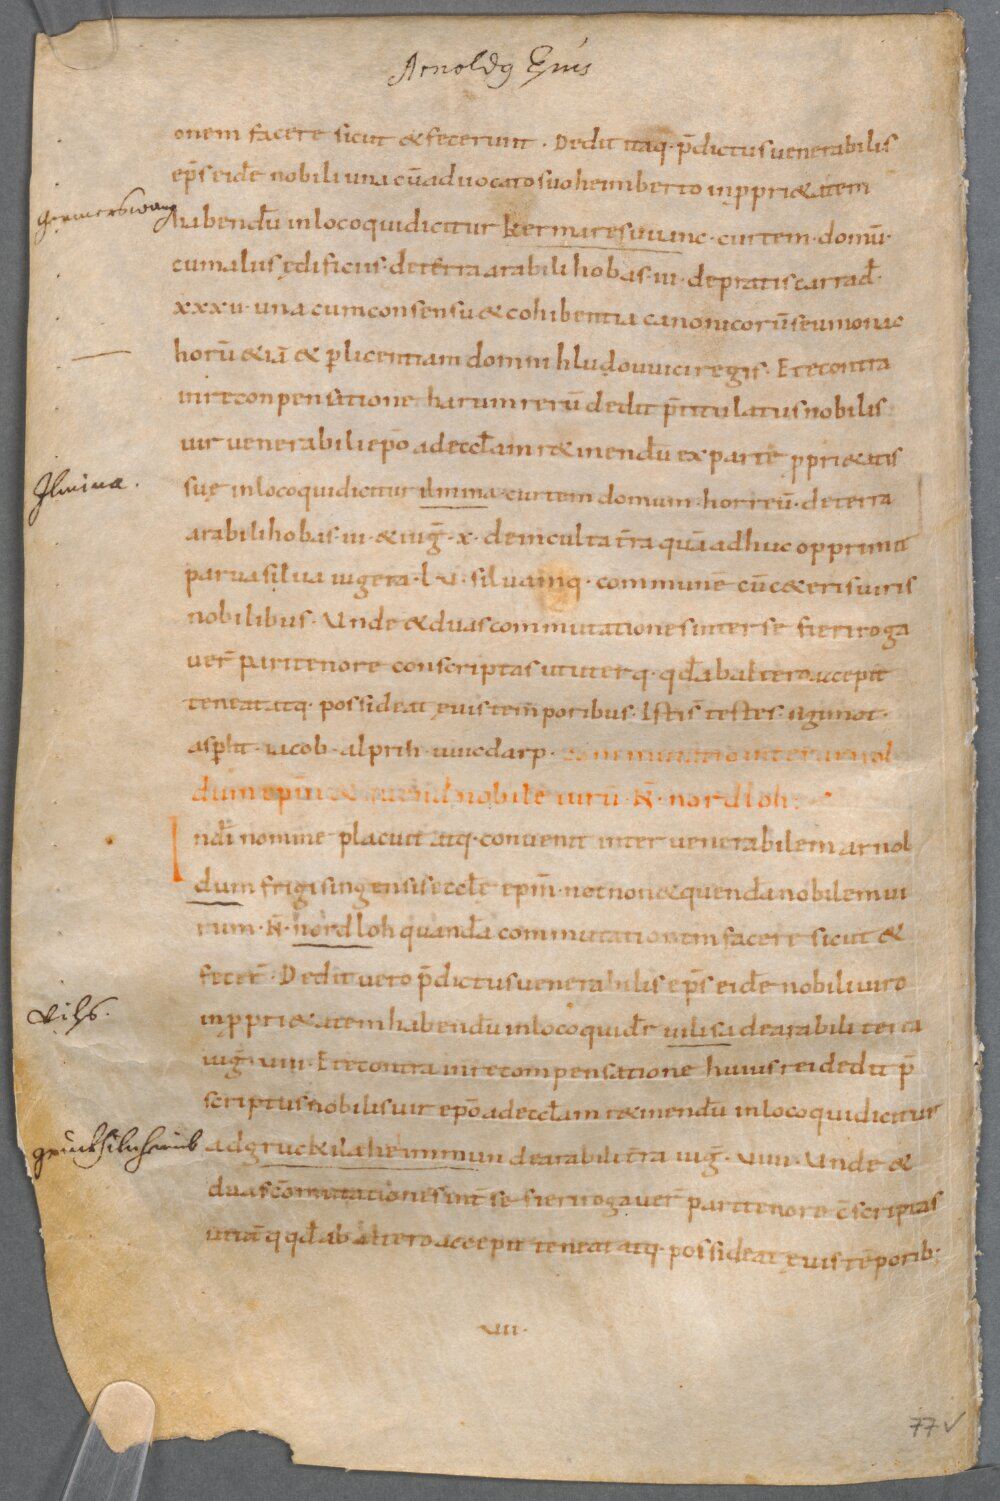 Arnoldꝰ Ep̄us
onem facere sicut & fecerunt . Dedit itaq· p̄dictus venerabilis
ep̄s eidē nobili una cū advocato suo heimberto in ꝓpri&atem
Germerswang
habendū in loco qui dicitur kermareswanc · curtem · domū ·
cum alus ędificiis · de terra arabili hobas · iii · de pratis carrad̄ ·
xxxii · una cum consensu & cohibentia canonicorū seu monac
horū & iā & p̲ licentiam domni hludouuici regis · E t econtra
in reconpensatione harum rerū dedit p̄titulatus nobilis
Ilmina.
vir venerabili ep̄o ad eccl̄am r&inendū ex parte ꝓpri&atis
suę in loco qui dicitur ilmina curtem domum · horreū · de terra
arabili hobas · iii · & iuḡ · x · de inculta t̄ra quā adhuc opprimit
parva silva iugera · l · v · silvamq· communē cū c&eris viris
nobilibus · Unde & duas commutationes inter se fieri roga
ver̄ pari tenore conscriptas ut uterq· qd̄ ab altero accepit
teneat atq· possideat ęvis temporibus · Istis testes · sig̅ not ·
asp̲ht · iacob · alprih · uuicdarp · commutatio inter arnol
dum ep̄m & nobilē virū · N̄ · nordloh :
In dī nomine placuit atq· convenit inter venerabilem arnol
dum frigisingensis eccl̄e ep̄m · necnon & quendā nobilem vi
rum · N̄ · nordloh quandā commutationem facere sicut &
fecer̄ · Dedit vero p̄dictus venerabilis ep̄s eidē nobili viro
Vihs.
in ꝓpri&atem habendū in loco qui dr̄ vilisa de arabili terra
iuḡ · viii · E t econtra in recompensatione huius rei dedit p̄
scriptus nobilis vir ep̄o ad eccl̄am r&inendū in loco qui dicitur
ad gruckilaheimmun de arabili t̄ra iuḡ · viiii · Unde &
duas cōmutationes int̄ se fieri rogaver̄ pari tenore c̄scriptas
ut iā q qd̄ ab altero accepit teneat atq· possideat ęvis tēporib:
viii ·
77v